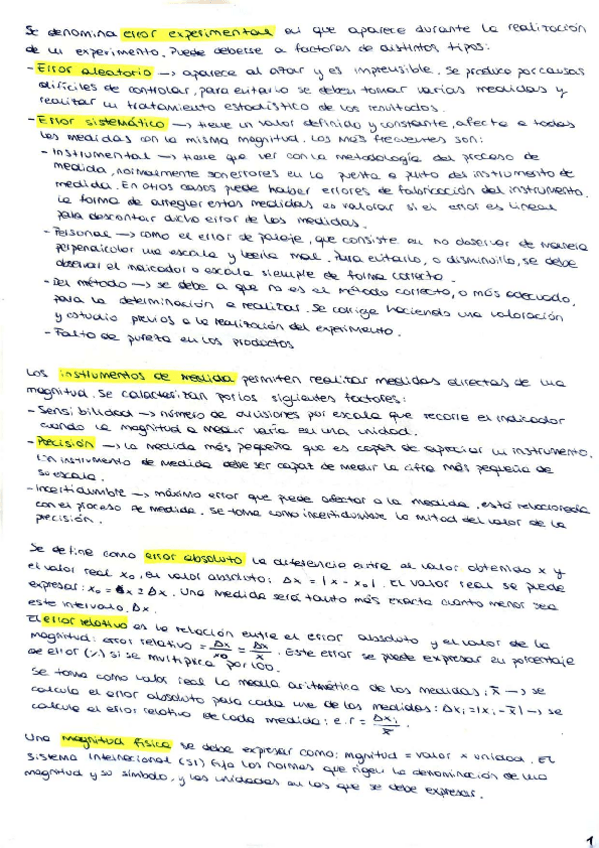 Se denomina error experimental al que aparece durante la realización
de un experimento. Puede deberse a factores de distintos tipos:
- Error aleatorio —> aparece al azar y es imprevisible. Se produce por causas
difíciles de controlar, para evitarlo se deben tomar varias medidas y
realizar un tratamiento estadístico de los resultados.
- Error sistemático —> tiene un valor definido y constante, afecta a todas
las medidas con la misma magnitud. Los más frecuentes son:
- Instrumental —> tiene que ver con la metodología del proceso de
medida, normalmente son errores en la puesta a punto del instrumento de
medida. En otros casos puede haber errores de fabricación del instrumento.
La forma de arreglar estas medidas es valorar si el error es lineal
para descontar dicho error de las medidas.
- Personal —> como el error de paralaje, que consiste en no observar de manera
perpendicular una escala y leerla mal. Para evitarlo, o disminuirlo, se debe
observar el indicador o escala siempre de forma correcta.
- Del método —> se debe a que no es el método correcto, o más adecuado,
para la determinación a realizar. Se corrige haciendo una valoración
y estudio previos a la realización del experimento.
- Falta de pureza en los productos
Los instrumentos de medida permiten realizar medidas directas de una
magnitud. Se caracterizan por los siguientes factores:
- Sensibilidad —> número de divisiones por escala que recorre el indicador
cuando la magnitud a medir varía en una unidad.
- Precisión —> la medida más pequeña que es capaz de apreciar un instrumento.
Un instrumento de medida debe ser capaz de medir la cifra más pequeña de
su escala.
- Incertidumbre —> máximo error que puede afectar a la medida, está relacionada
con el proceso de medida. Se toma como incertidumbre la mitad del valor de la
precisión.
Se define como error absoluto la diferencia entre el valor obtenido x y
el valor real x₀, en valor absoluto: Δx = |x - x₀|. El valor real se puede
expresar: x₀ = x ± Δx. Una medida será tanto más exacta cuanto menor sea
este intervalo, Δx.
El error relativo es la relación entre el error absoluto y el valor de la
magnitud: error relativo = Δx/x₀ = Δx/x. Este error se puede expresar en porcentaje
de error (%) si se multiplica por 100.
Se toma como valor real la media aritmética de las medidas: x̄ —> se
calcula el error absoluto para cada una de las medidas: Δxᵢ = |xᵢ - x̄| —> se
calcula el error relativo de cada medida: e.r = Δxᵢ/x̄.
Una magnitud física se debe expresar como: mgnitud = valor x unidad. El
Sistema Internacional (SI) fija las normas que rigen la denominación de una
magnitud y su símbolo, y las unidades en las que se debe expresar.
1